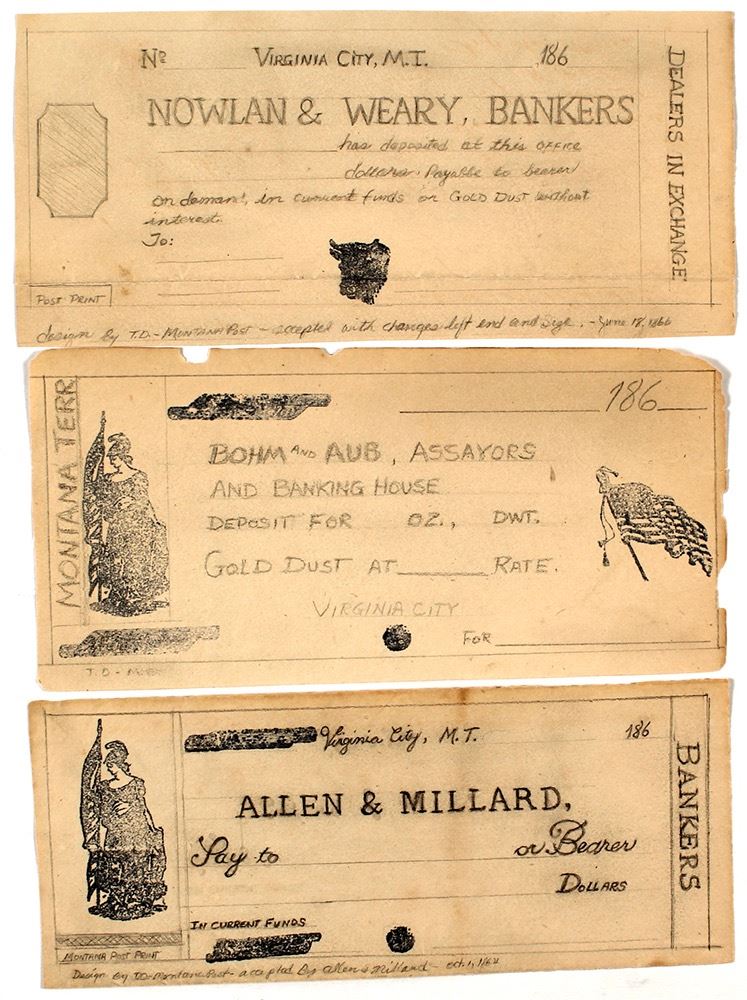 Nº VIRGINIA CITY, M.T. 186
NOWLAN & WEARY, BANKERS
has deposited at this OFFICE
dollars. Payable to bearer
on demand, in current funds or GOLD DUST without
interest.
To:
DEALERS IN EXCHANGE
POST PRINT
design by T.D. - MONTANA POST - accepted with changes left end and size. - June 18, 1866
MONTANA TERR
186
BOHM AND AUB, ASSAYORS
AND BANKING HOUSE
DEPOSIT FOR OZ., DWT.
GOLD DUST AT RATE.
VIRGINIA CITY
FOR
T.D. - M.
Virginia City, M.T. 186
ALLEN & MILLARD,
Pay to or Bearer
DOLLARS
IN CURRENT FUNDS
BANKERS
MONTANA POST PRINT
Design by TD - Montana Post - accepted By Allen & Millard - oct. 1,